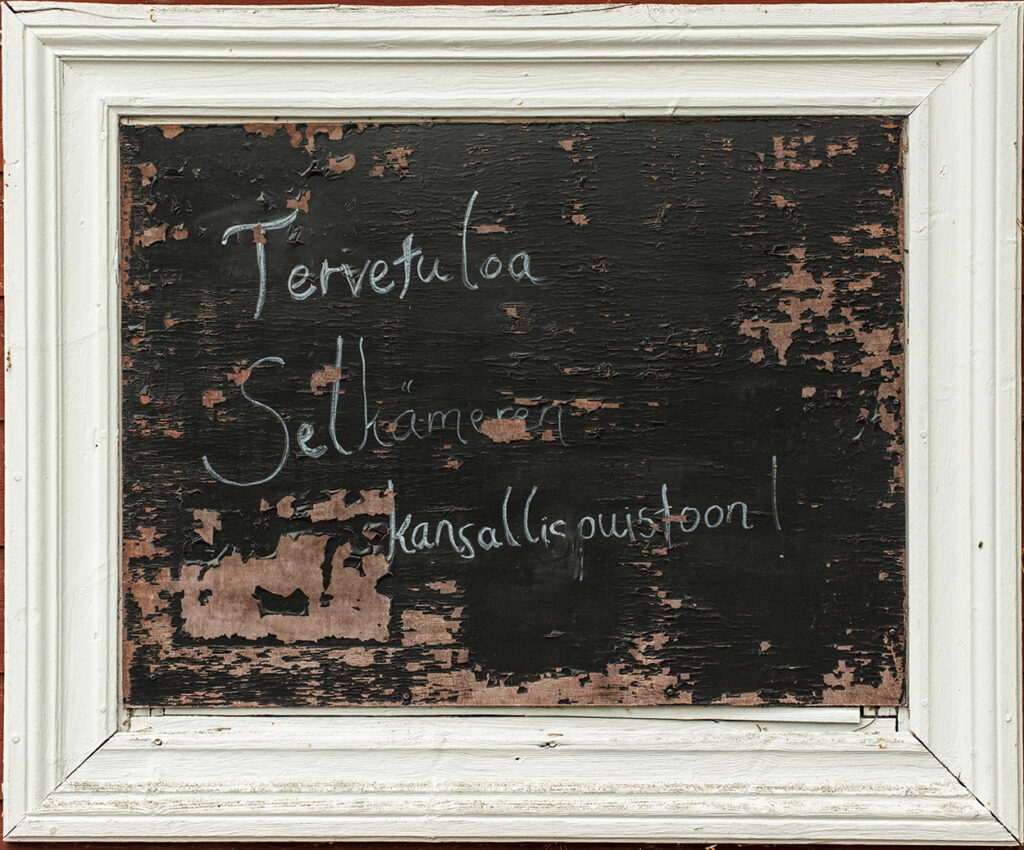 Tervetuloa
Selkämeren
kansallispuistoon!